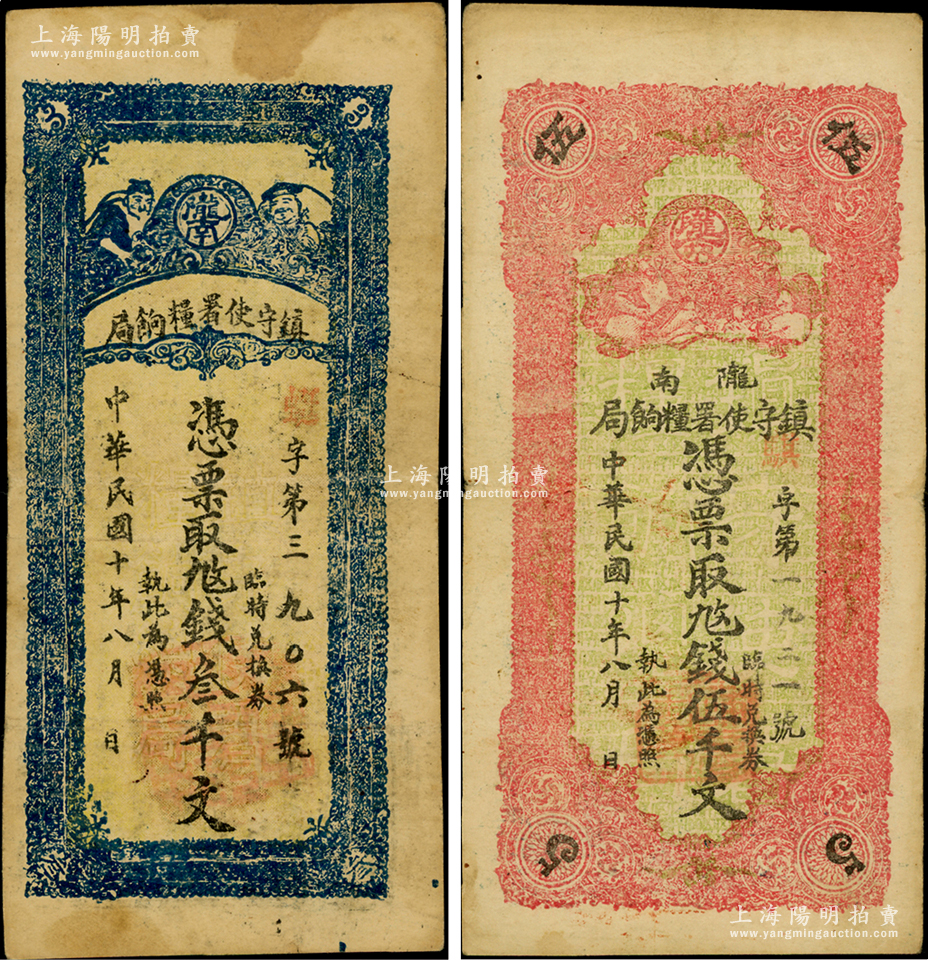 上海陽明拍賣
www.yangmingauction.com
3
3
隴南
鎮守使署糧餉局
字第三九〇六號
臨時兌換券
憑票取尨錢叁千文
執此為憑照
中華民國十年八月 日
伍
伍
隴南
隴南
鎮守使署糧餉局
鎮
字第一九二一號
臨時兌換券
憑票取尨錢伍千文
執此為憑照
中華民國十年八月 日
5
5
上海陽明拍賣
www.yangmingauction.com
上海陽明拍賣
www.yangmingauction.com